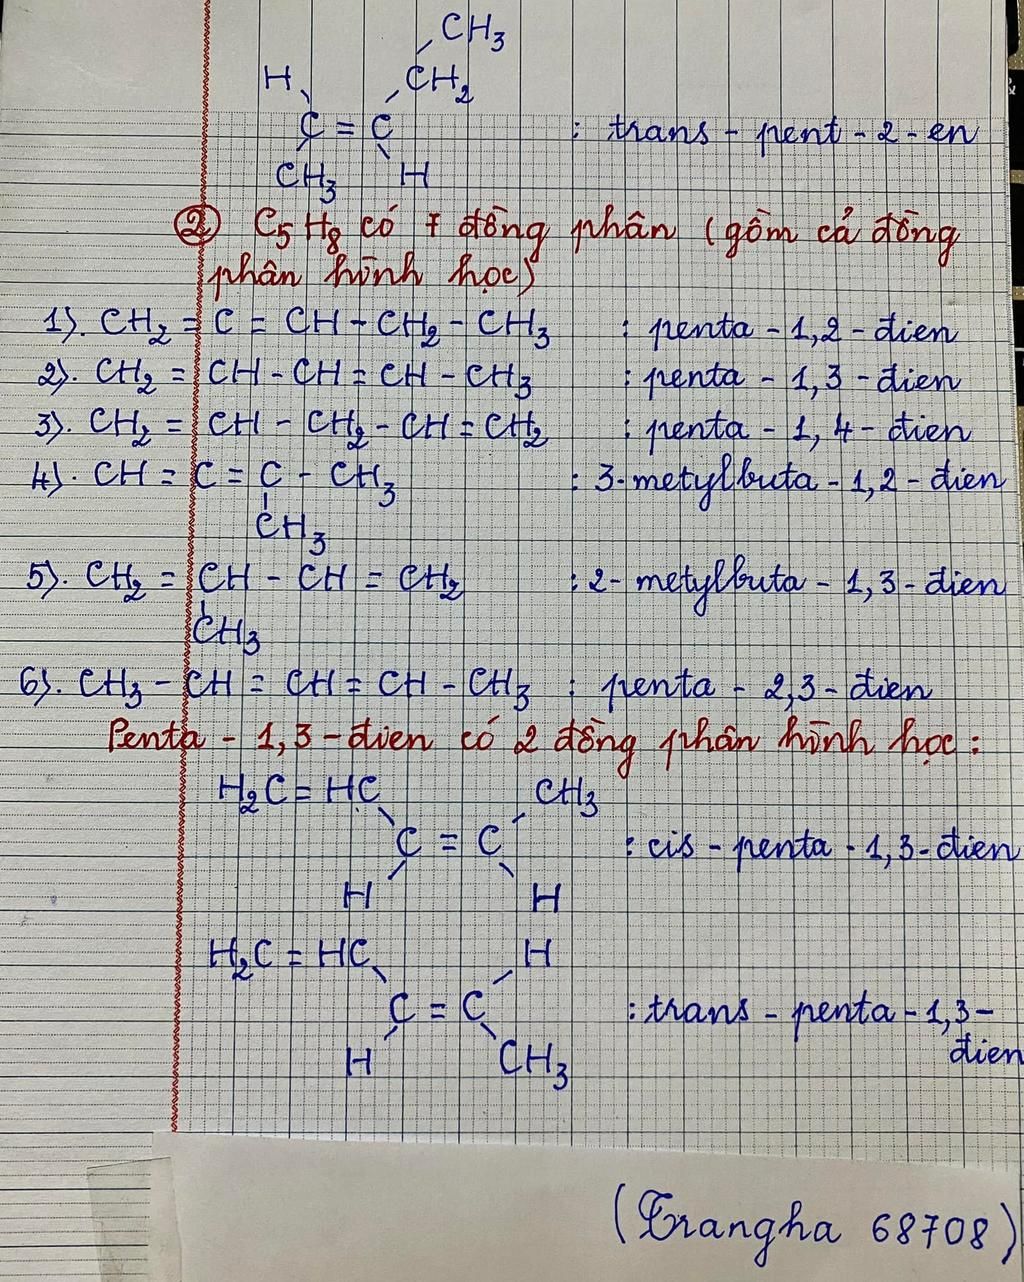 CH3
H CH2
C = C : trans - pent - 2 - en
CH3 H
② C5H8 có 7 đồng phân (gồm cả đồng
phân hình học)
1). CH2 = C = CH - CH2 - CH3 : penta - 1,2 - đien
2). CH2 = CH - CH = CH - CH3 : penta - 1,3 - đien
3). CH2 = CH - CH2 - CH = CH2 : penta - 1,4 - đien
4). CH = C = C - CH3 : 3-metylbuta - 1,2 - đien
CH3
5). CH2 = CH - CH = CH2 : 2- metylbuta - 1,3 - đien
CH3
6). CH3 - CH = CH = CH - CH3 : penta - 2,3 - đien
Penta - 1,3 - đien có 2 đồng phân hình học :
H2C = HC CH3
C = C : cis - penta - 1,3 - đien
H H
H2C = HC H
C = C : trans - penta - 1,3 -
đien
H CH3
(Trangha 68708)